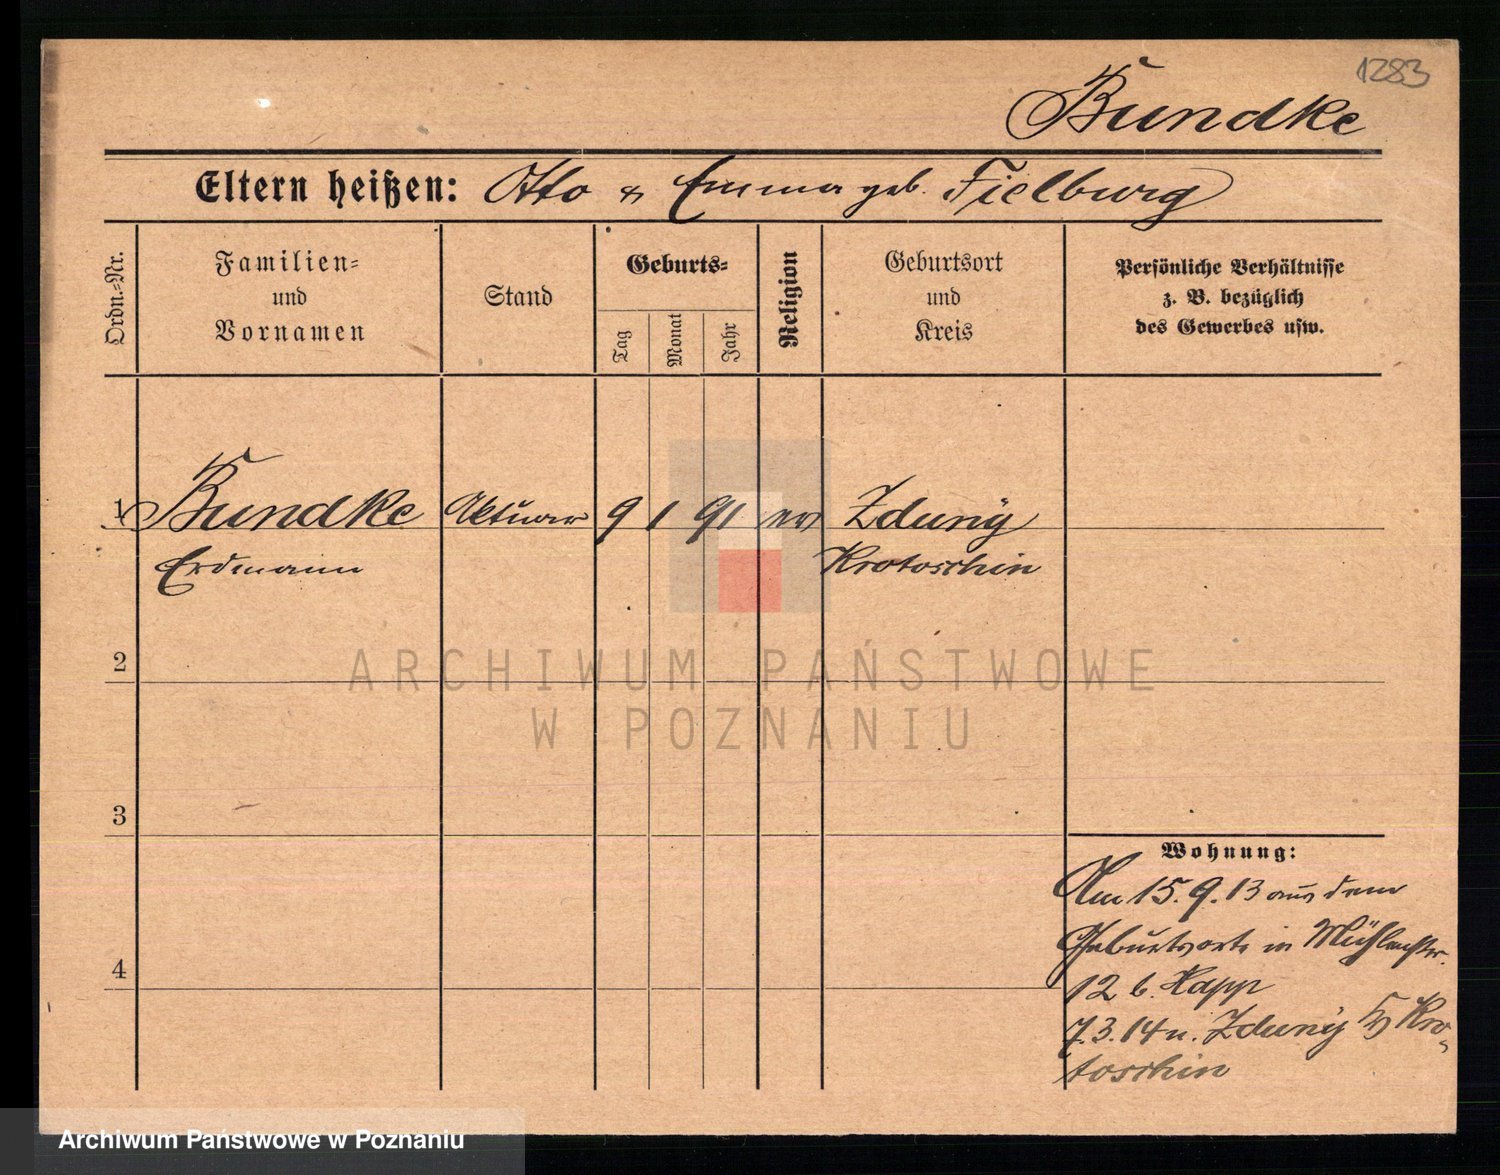 1283
Bundke
Eltern heißen: Otto & Emma geb. Fielburg
Ordn.-Nr.
Familien-
und
Vornamen
Stand
Geburts-
Tag
Monat
Jahr
Religion
Geburtsort
und
Kreis
Persönliche Verhältnisse
z. B. bezüglich
des Gewerbes usw.
1 Bundke Aktuar 9 1 91 ev Zduny
Erdmann Krotoschin
2
ARCHIWUM PAŃSTWOWE
W POZNANIU
3
Wohnung:
Am 15.9.13 aus dem
Geburtsorte in Mühlenstr.
4
12 b. Kapp
7.3.14 n. Zduny Kro-
toschin
Archiwum Państwowe w Poznaniu